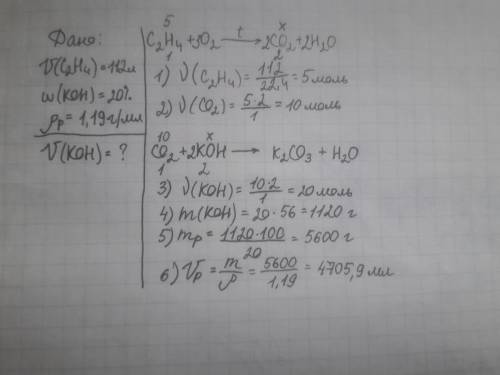 Дано:
V(C₂H₄)=112л
ω(KOH)=20%
ρр=1,19г/мл
V(KOH)=?
5 x
C₂H₄+3O₂ —t→ 2CO₂+2H₂O
1 2
1) ν(C₂H₄)=112/22,4=5моль
2) ν(CO₂)=5·2/1=10 моль
10 x
CO₂+2KOH → K₂CO₃+H₂O
1 2
3) ν(KOH)=10·2/1=20моль
4) m(KOH)=20·56=1120 г
5) mр=1120·100/20=5600 г
6) Vр=m/ρ=5600/1,19=4705,9 мл